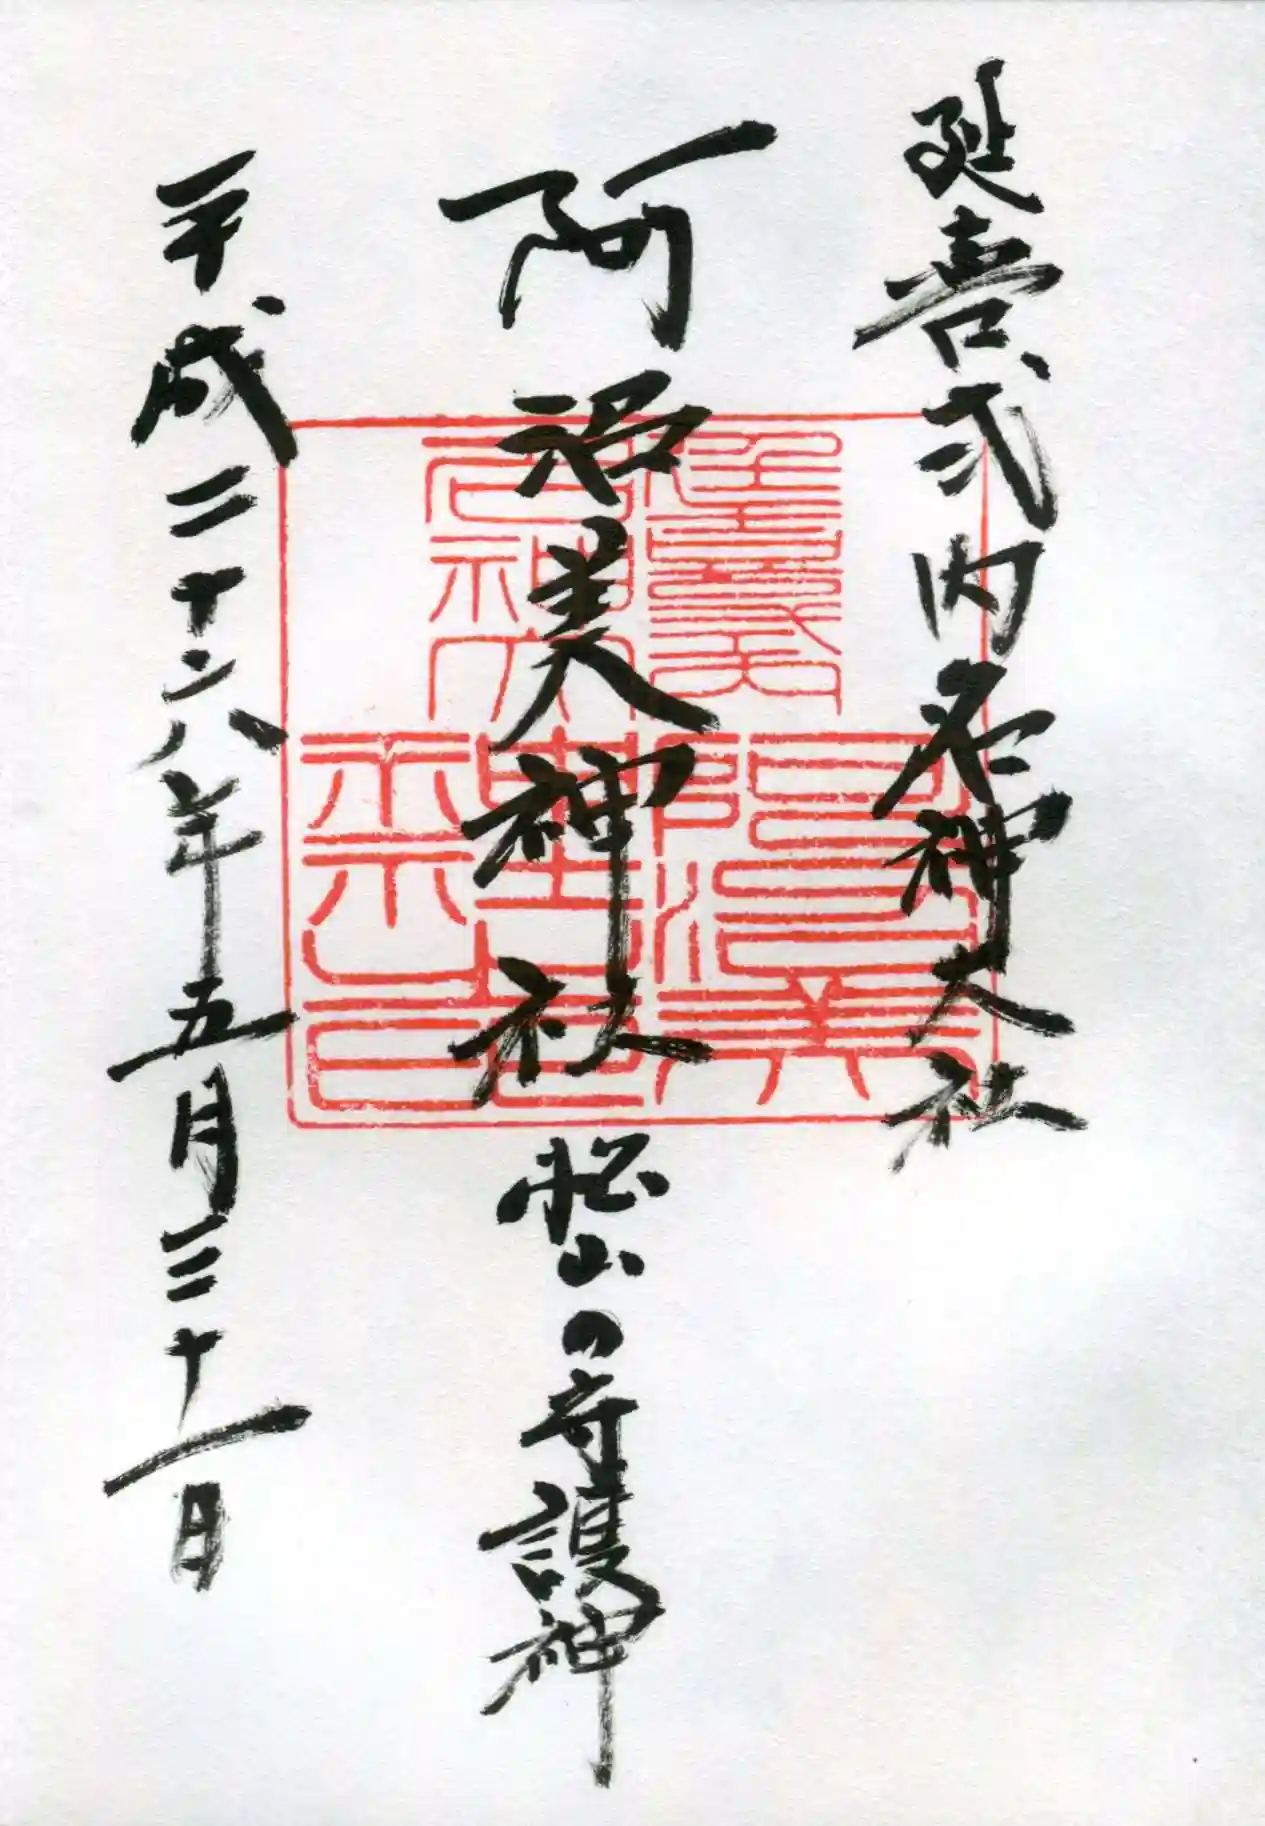 延喜式内名神大社
阿沼美神社 松山の守護神
平成二十六年五月三十一日